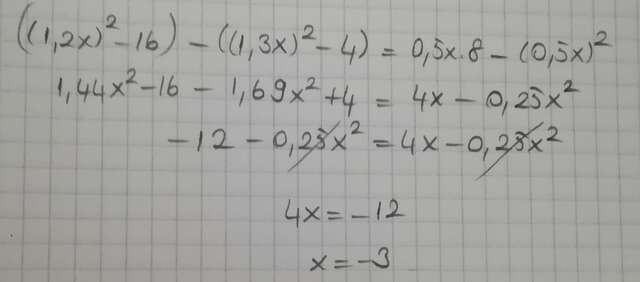 ((1,2x)²-16) - ((1,3x)²-4) = 0,5x·8 - (0,5x)²
1,44x²-16 - 1,69x²+4 = 4x - 0,25x²
-12 - 0,25x² = 4x - 0,25x²
4x = -12
x = -3